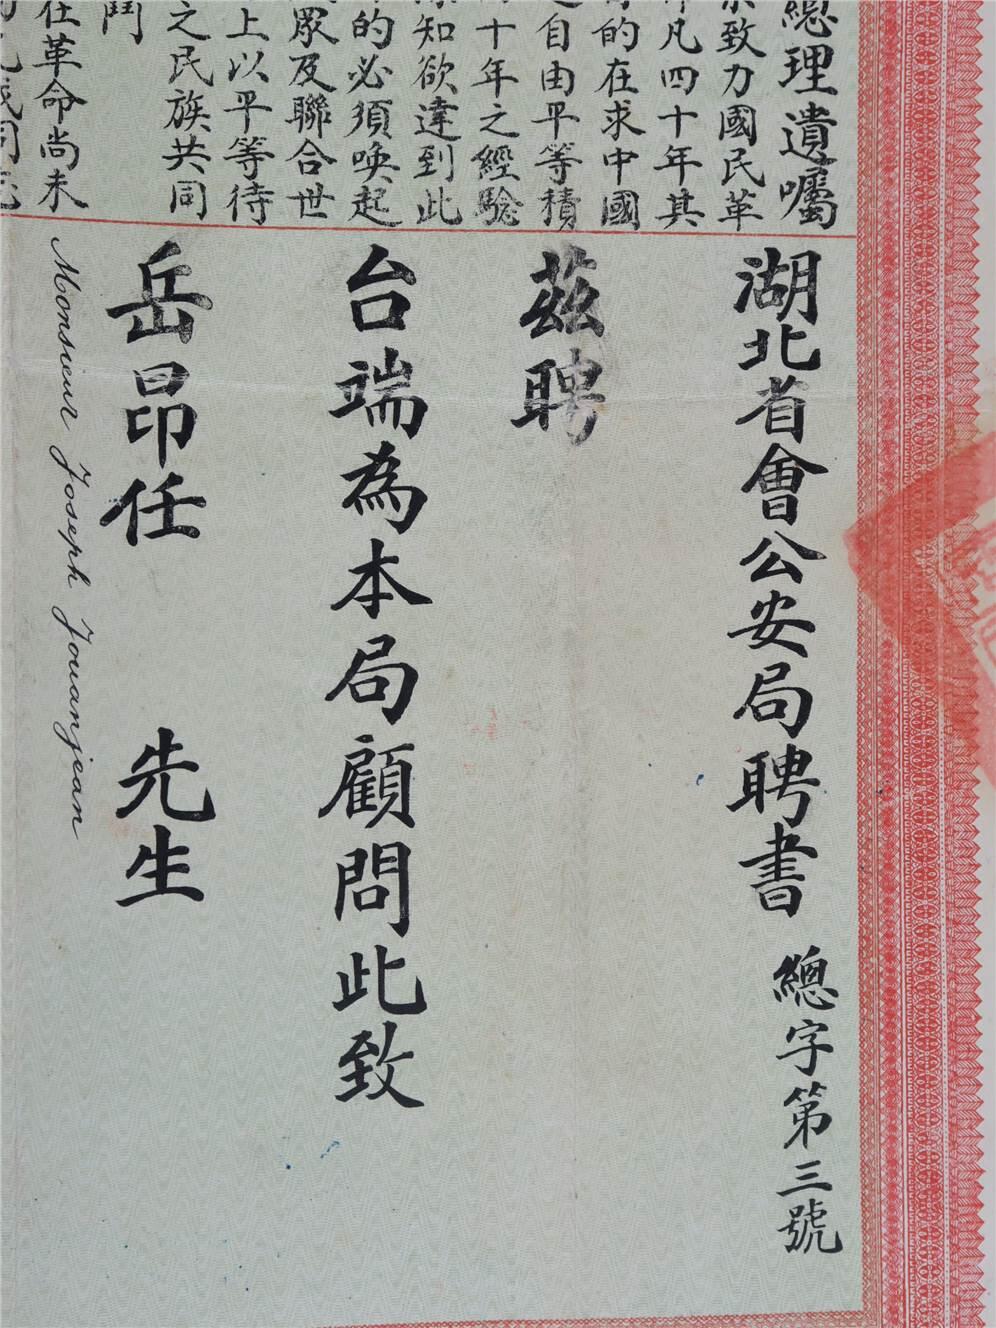 總理遺囑
致力國民革
凡四十年其
的在求中國
自由平等積
十年之經驗
知欲達到此
的必須喚起
眾及聯合世
上以平等待
之民族共同
鬥
在革命尚未
湖北省會公安局聘書 總字第三號
茲聘
台端為本局顧問此致
岳昂任 先生
Monsieur Joseph Jouanjean